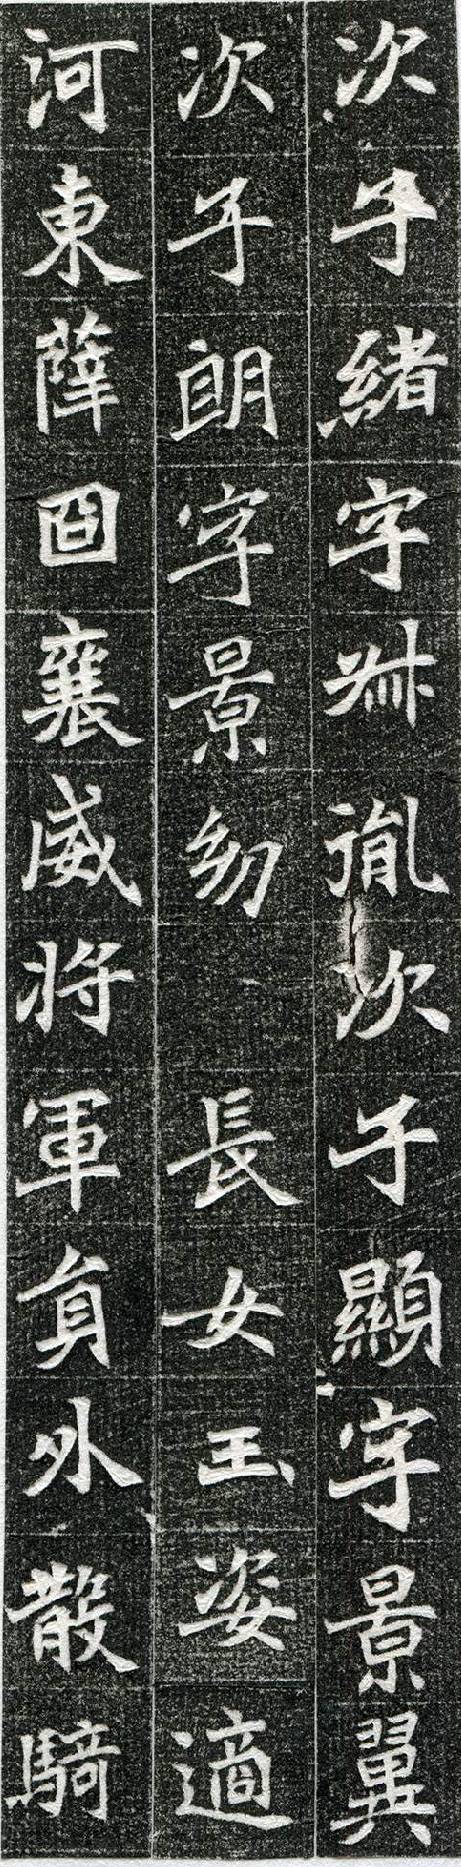 次子緒字叔胤次子顯字景翼
次子朗字景幼 長女玉姿適
河東薛回襄威将軍員外散騎